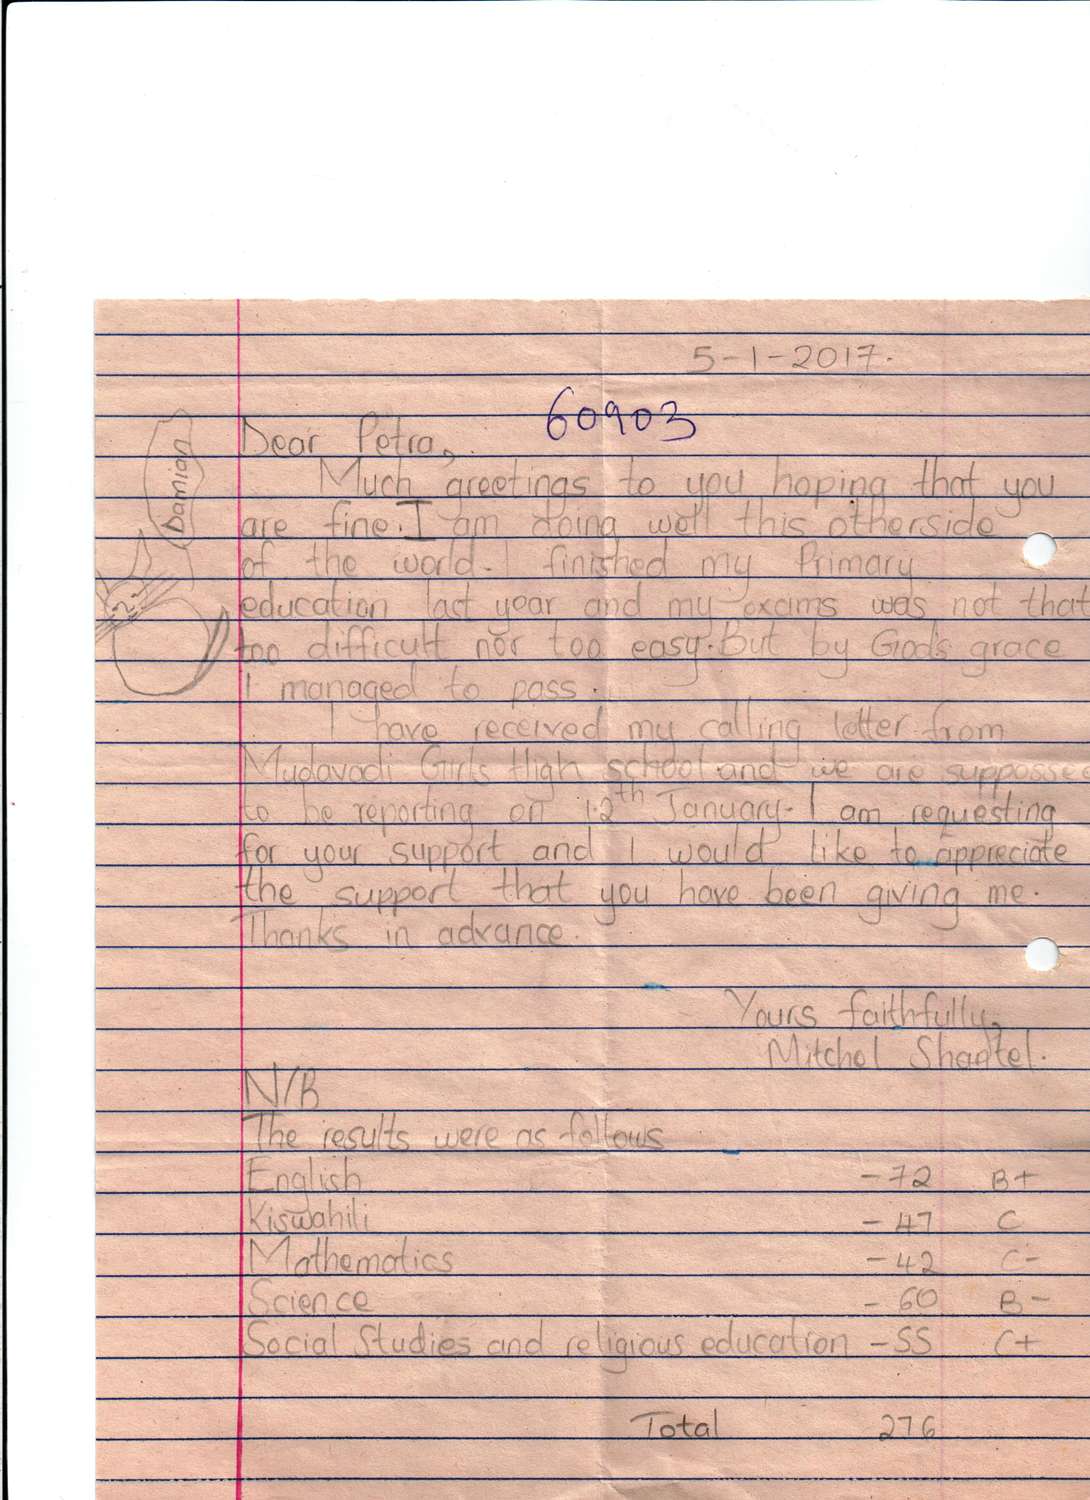 5-1-2017.
60903
Dear Petra,
Damian
Much greetings to you hoping that you
are fine. I am doing well this otherside
of the world. I finished my Primary
education last year and my exams was not that
too difficult nor too easy. But by God's grace
I managed to pass.
I have received my calling letter from
Mudavadi Girls High school and we are suppossed
to be reporting on 12th January. I am requesting
for your support and I would like to appreciate
the support that you have been giving me.
Thanks in advance.
Yours faithfully,
Mitchel Shantel.
N/B
The results were as follows
English -72 B+
Kiswahili -47 C
Mathematics -42 C-
Science -60 B-
Social Studies and religious education -55 C+
Total 276